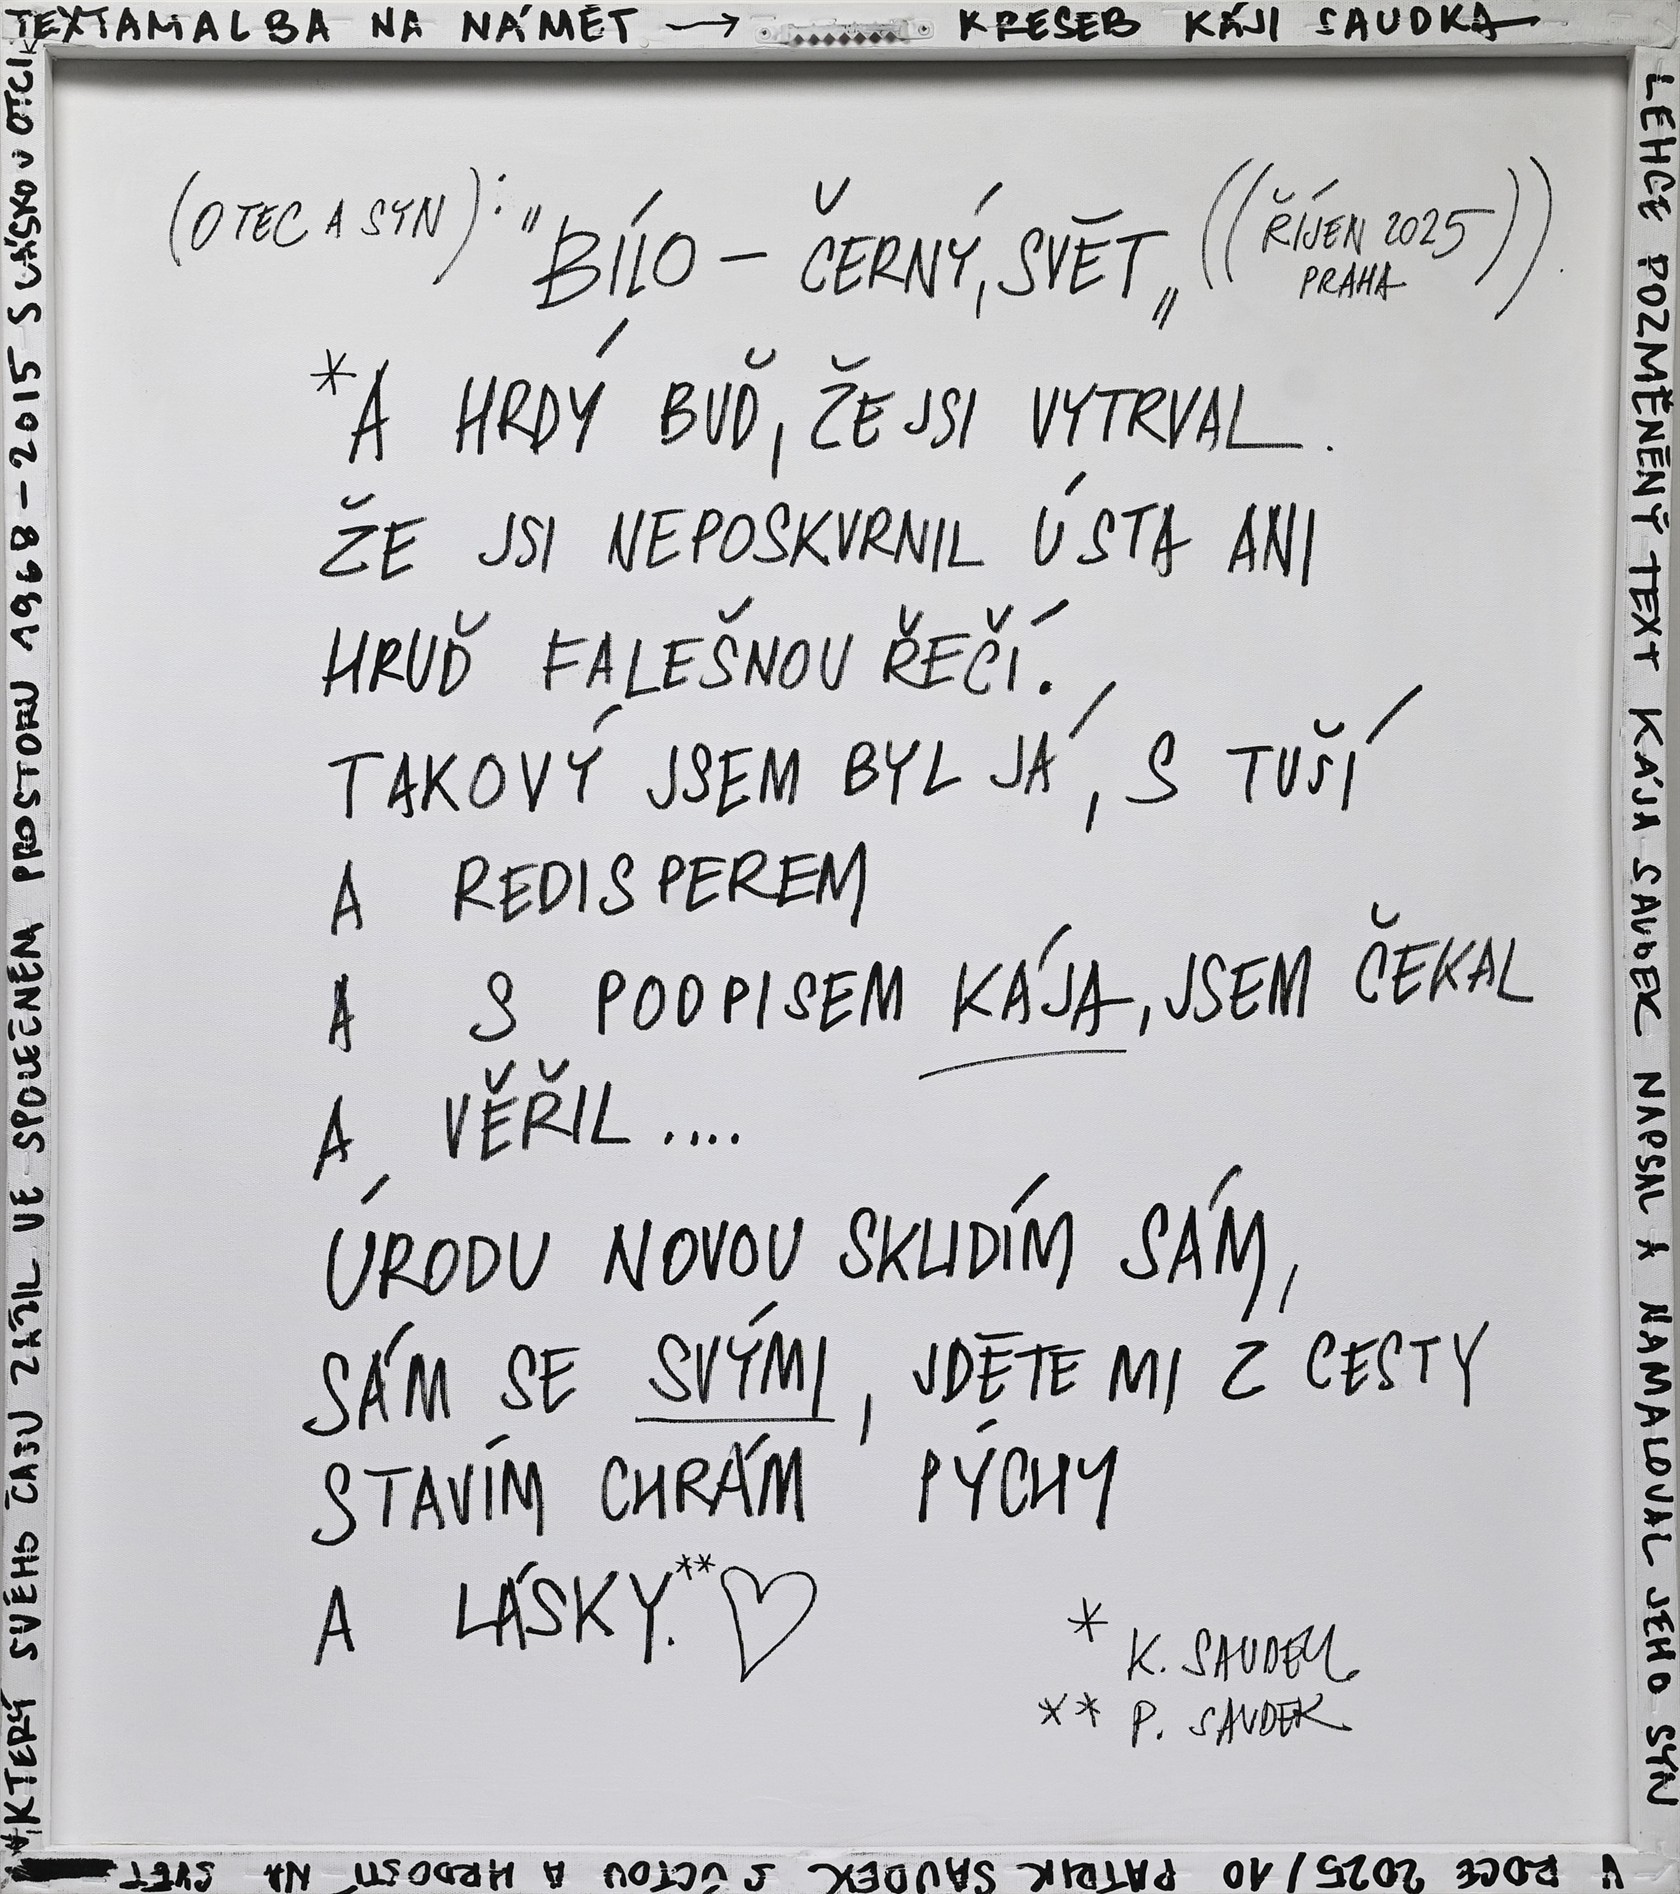 TEXT A MALBA NA NÁMĚT → KRESEB KÁJI SAUDKA
LEHCE POZMĚNĚNÝ TEXT KÁJA SAUDEK NAPSAL A NAMALOVAL JEHO SYN
V ROCE 2025/10 PATRIK SAUDEK S ÚCTOU A HRDOSTÍ NA SVĚT
KTERÝ SVÉHO ČASU ZAŽIL VE SPOLEČNÉM PROSTORU 1968-2015 S LÁSKOU OTCI
(OTEC A SYN): "BÍLO - ČERNÝ, SVĚT„ ((ŘÍJEN 2025
PRAHA))
*A HRDÝ BUĎ, ŽE JSI VYTRVAL.
ŽE JSI NEPOSKVRNIL ÚSTA ANI
HRUĎ FALEŠNOU ŘEČÍ.
TAKOVÝ JSEM BYL JÁ, S TUŠÍ
A REDISPEREM
A S PODPISEM KÁJA, JSEM ČEKAL
A VĚŘIL....
ÚRODU NOVOU SKLIDÍM SÁM,
SÁM SE SVÝMI, JDĚTE MI Z CESTY
STAVÍM CHRÁM PÝCHY
A LÁSKY.** ♡
* K. SAUDEK
** P. SAUDEK